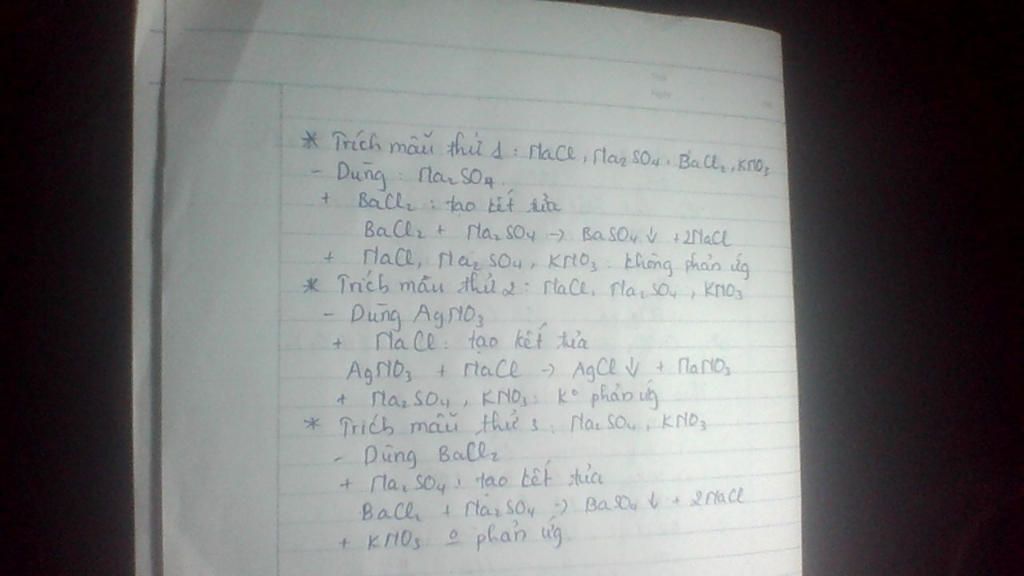 * Trích mẫu thử 1 : NaCl, Na₂SO₄, BaCl₂, KNO₃
- Dùng : Na₂SO₄.
+ BaCl₂ : tạo kết tủa
BaCl₂ + Na₂SO₄ → BaSO₄ ↓ + 2NaCl
+ NaCl, Na₂SO₄, KNO₃ : không phản ứg
* Trích mẫu thử 2 : NaCl, Na₂SO₄, KNO₃
- Dùng AgNO₃
+ NaCl : tạo kết tủa
AgNO₃ + NaCl → AgCl ↓ + NaNO₃
+ Na₂SO₄, KNO₃ : K° phản ứg
* Trích mẫu thử 3 : Na₂SO₄, KNO₃
- Dùng BaCl₂
+ Na₂SO₄ : tạo kết tủa
BaCl₂ + Na₂SO₄ → BaSO₄ ↓ + 2NaCl
+ KNO₃ : o phản ứg